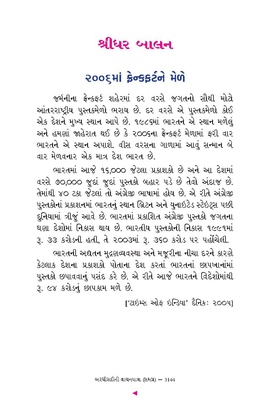 શ્રીધર બાલન
૨૦૦૬માં ફ્રેન્કફર્ટને મેળે
જર્મનીના ફ્રેન્કફર્ટ શહેરમાં દર વરસે જગતનો સૌથી મોટો
આંતરરાષ્ટ્રીય પુસ્તકમેળો ભરાય છે. દર વરસે એ પુસ્તકમેળો કોઈ
એક દેશને મુખ્ય સ્થાન આપે છે. ૧૯૮૬માં ભારતને એ સ્થાન મળેલું
અને હમણાં જાહેરાત થઈ છે કે ૨૦૦૬ના ફ્રેન્કફર્ટ મેળામાં ફરી વાર
ભારતને એ સ્થાન અપાશે. વીસ વરસના ગાળામાં આવું સન્માન બે
વાર મેળવનાર એક માત્ર દેશ ભારત છે.
ભારતમાં આજે ૧૬,૦૦૦ જેટલા પ્રકાશકો છે અને આ દેશમાં
વરસે ૭૦,૦૦૦ જુદાં જુદાં પુસ્તકો બહાર પડે છે તેવો અંદાજ છે.
તેમાંથી ૪૦ ટકા જેટલાં તો અંગ્રેજી ભાષામાં હોય છે. એ રીતે અંગ્રેજી
પુસ્તકોનાં પ્રકાશનમાં ભારતનું સ્થાન બ્રિટન અને યુનાઇટેડ સ્ટેઇટ્સ પછી
દુનિયામાં ત્રીજું આવે છે. ભારતમાં પ્રકાશિત અંગ્રેજી પુસ્તકો જગતના
ઘણા દેશોમાં નિકાસ થાય છે. ભારતીય પુસ્તકોની નિકાસ ૧૯૯૧માં
રૂ. ૩૩ કરોડની હતી, તે ૨૦૦૩માં રૂ. ૩૬૦ કરોડ પર પહોંચેલી.
ભારતની અદ્યતન મુદ્રણવ્યવસ્થા અને મજૂરીના નીચા દરને કારણે
કેટલાક દેશના પ્રકાશકો પોતાના દેશ કરતાં ભારતનાં છાપખાનાંમાં
પુસ્તકો છપાવવાનું પસંદ કરે છે. એ રીતે આજે ભારતને વિદેશોમાંથી
રૂ. ૯૪ કરોડનું છાપકામ મળે છે.
['ટાઇમ્સ ઓફ ઇન્ડિયા' દૈનિક: ૨૦૦૫]